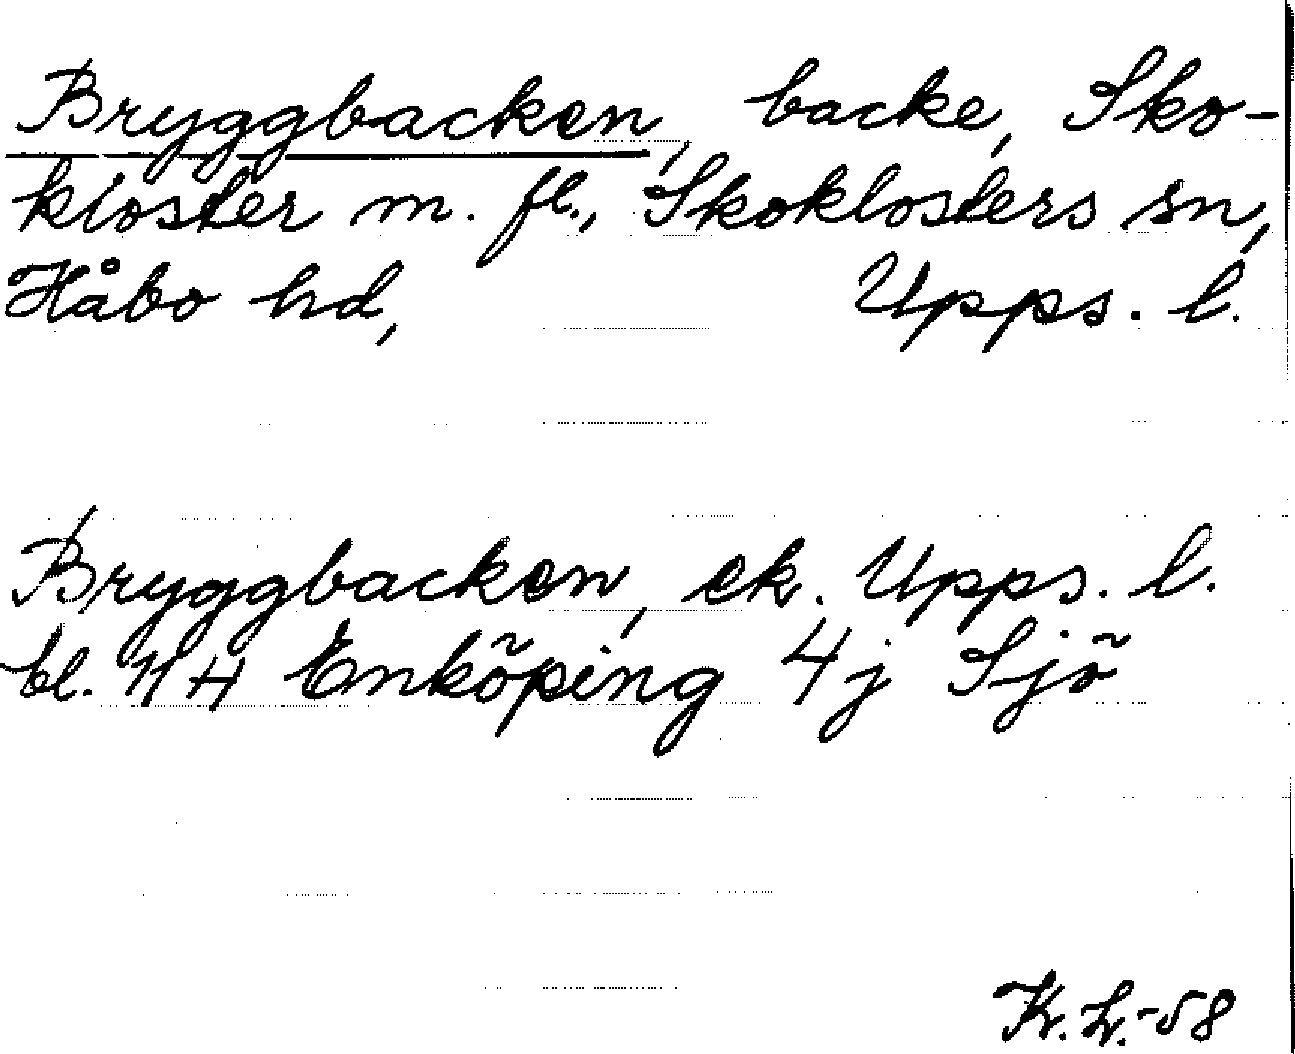 Bryggbacken, backe, Sko-
kloster m. fl., Skoklosters sn,
Håbo hd, Upps. l.
Bryggbacken, ek. Upps. l.
bl. 114 Enköping 4j Sjö
Kr. L.-58